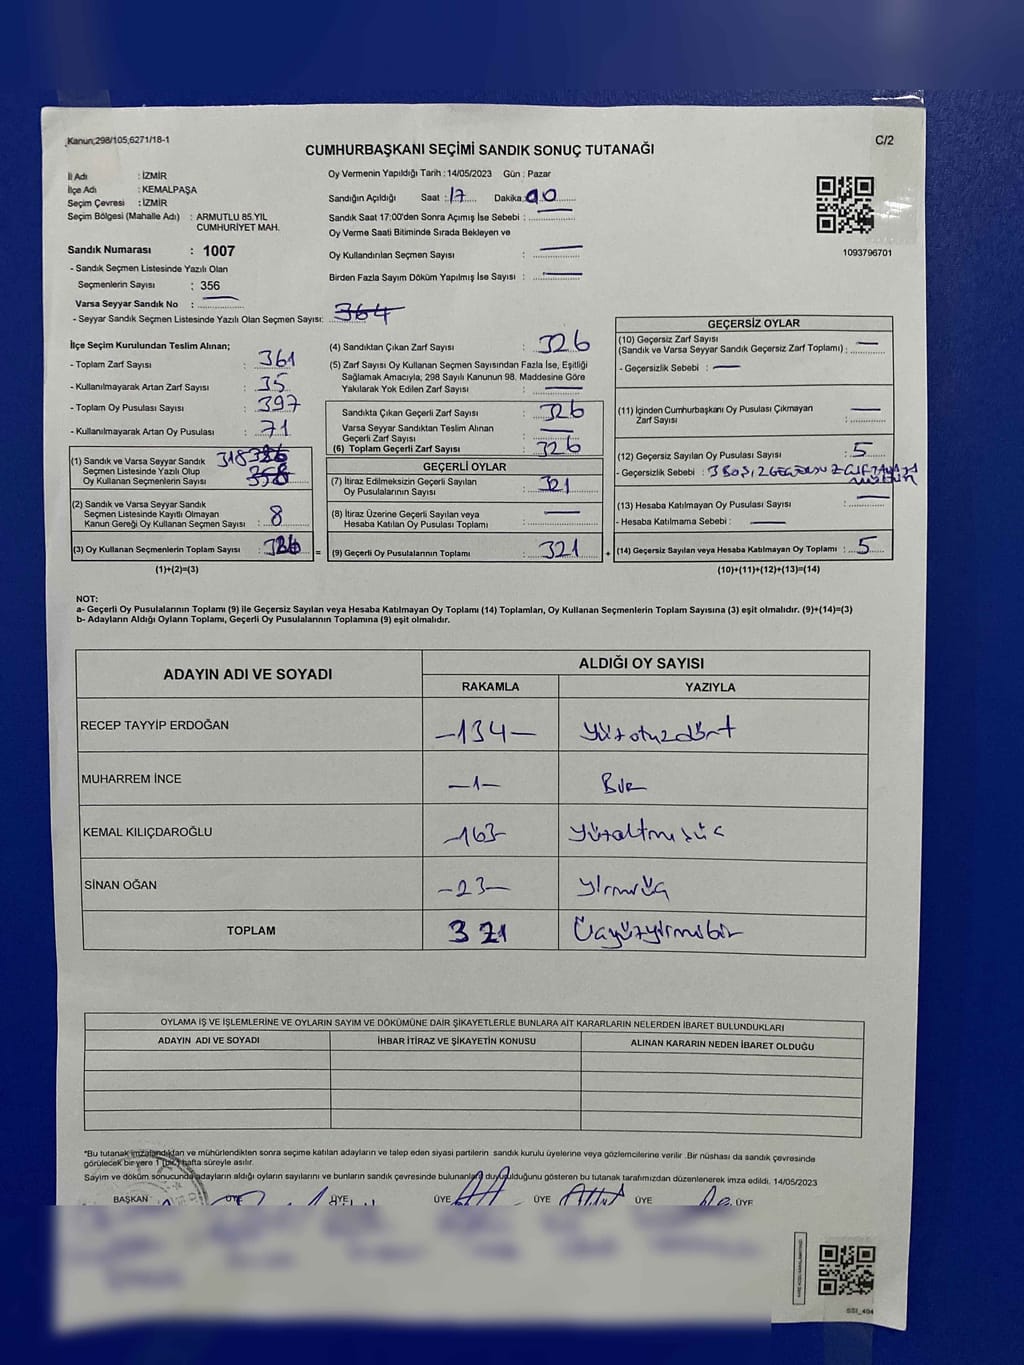 Kanun;298/105,6271/18-1
C/2
CUMHURBAŞKANI SEÇİMİ SANDIK SONUÇ TUTANAĞI
İl Adı : İZMİR
İlçe Adı : KEMALPAŞA
Seçim Çevresi : İZMİR
Seçim Bölgesi (Mahalle Adı) : ARMUTLU 85.YIL
CUMHURİYET MAH.
Sandık Numarası : 1007
- Sandık Seçmen Listesinde Yazılı Olan
Seçmenlerin Sayısı : 356
Varsa Seyyar Sandık No :
- Seyyar Sandık Seçmen Listesinde Yazılı Olan Seçmen Sayısı: 364
Oy Vermenin Yapıldığı Tarih : 14/05/2023 Gün : Pazar
Sandığın Açıldığı Saat : 17 Dakika 00
Sandık Saat 17:00'den Sonra Açımış İse Sebebi :
Oy Verme Saati Bitiminde Sırada Bekleyen ve
Oy Kullandırılan Seçmen Sayısı :
Birden Fazla Sayım Döküm Yapılmış İse Sayısı :
1093796701
İlçe Seçim Kurulundan Teslim Alınan;
- Toplam Zarf Sayısı : 361
- Kullanılmayarak Artan Zarf Sayısı : 35
- Toplam Oy Pusulası Sayısı : 397
- Kullanılmayarak Artan Oy Pusulası : 71
(1) Sandık ve Varsa Seyyar Sandık
Seçmen Listesinde Yazılı Olup
Oy Kullanan Seçmenlerin Sayısı 318
(2) Sandık ve Varsa Seyyar Sandık
Seçmen Listesinde Kayıtlı Olmayan
Kanun Gereği Oy Kullanan Seçmen Sayısı : 8
(3) Oy Kullanan Seçmenlerin Toplam Sayısı : 326 =
(1)+(2)=(3)
(4) Sandıktan Çıkan Zarf Sayısı : 326
(5) Zarf Sayısı Oy Kullanan Seçmen Sayısından Fazla İse, Eşitliği
Sağlamak Amacıyla; 298 Sayılı Kanunun 98. Maddesine Göre
Yakılarak Yok Edilen Zarf Sayısı :
Sandıkta Çıkan Geçerli Zarf Sayısı : 326
Varsa Seyyar Sandıktan Teslim Alınan
Geçerli Zarf Sayısı :
(6) Toplam Geçerli Zarf Sayısı : 326
GEÇERLİ OYLAR
(7) İtiraz Edilmeksizin Geçerli Sayılan
Oy Pusulalarının Sayısı : 321
(8) İtiraz Üzerine Geçerli Sayılan veya
Hesaba Katılan Oy Pusulası Toplamı :
(9) Geçerli Oy Pusulalarının Toplamı : 321 +
GEÇERSİZ OYLAR
(10) Geçersiz Zarf Sayısı
(Sandık ve Varsa Seyyar Sandık Geçersiz Zarf Toplamı) :
- Geçersizlik Sebebi :
(11) İçinden Cumhurbaşkanı Oy Pusulası Çıkmayan
Zarf Sayısı :
(12) Geçersiz Sayılan Oy Pusulası Sayısı : 5
- Geçersizlik Sebebi : 3 BOŞ, 2
(13) Hesaba Katılmayan Oy Pusulası Sayısı :
- Hesaba Katılmama Sebebi :
(14) Geçersiz Sayılan veya Hesaba Katılmayan Oy Toplamı : 5
(10)+(11)+(12)+(13)=(14)
NOT:
a- Geçerli Oy Pusulalarının Toplamı (9) ile Geçersiz Sayılan veya Hesaba Katılmayan Oy Toplamı (14) Toplamları, Oy Kullanan Seçmenlerin Toplam Sayısına (3) eşit olmalıdır. (9)+(14)=(3)
b- Adayların Aldığı Oyların Toplamı, Geçerli Oy Pusulalarının Toplamına (9) eşit olmalıdır.
ADAYIN ADI VE SOYADI
ALDIĞI OY SAYISI
RAKAMLA YAZIYLA
RECEP TAYYİP ERDOĞAN -134- Yüzotuzdört
MUHARREM İNCE -1- Bir
KEMAL KILIÇDAROĞLU -163- Yüzaltmışüç
SİNAN OĞAN -23- Yirmiüç
TOPLAM 321 Üçyüzyirmibir
OYLAMA İŞ VE İŞLEMLERİNE VE OYLARIN SAYIM VE DÖKÜMÜNE DAİR ŞİKAYETLERLE BUNLARA AİT KARARLARIN NELERDEN İBARET BULUNDUKLARI
ADAYIN ADI VE SOYADI İHBAR İTİRAZ VE ŞİKAYETİN KONUSU ALINAN KARARIN NEDEN İBARET OLDUĞU
*Bu tutanak imzalandıktan ve mühürlendikten sonra seçime katılan adayların ve talep eden siyasi partilerin sandık kurulu üyelerine veya gözlemcilerine verilir .Bir nüshası da sandık çevresinde
görülecek bir yere 1 (bir) hafta süreyle asılır.
Sayım ve döküm sonucunda adayların aldığı oyların sayılarını ve bunların sandık çevresinde bulunanlara duyurulduğunu gösteren bu tutanak tarafımızdan düzenlenerek imza edildi. 14/05/2023
BAŞKAN ÜYE ÜYE ÜYE ÜYE ÜYE ÜYE